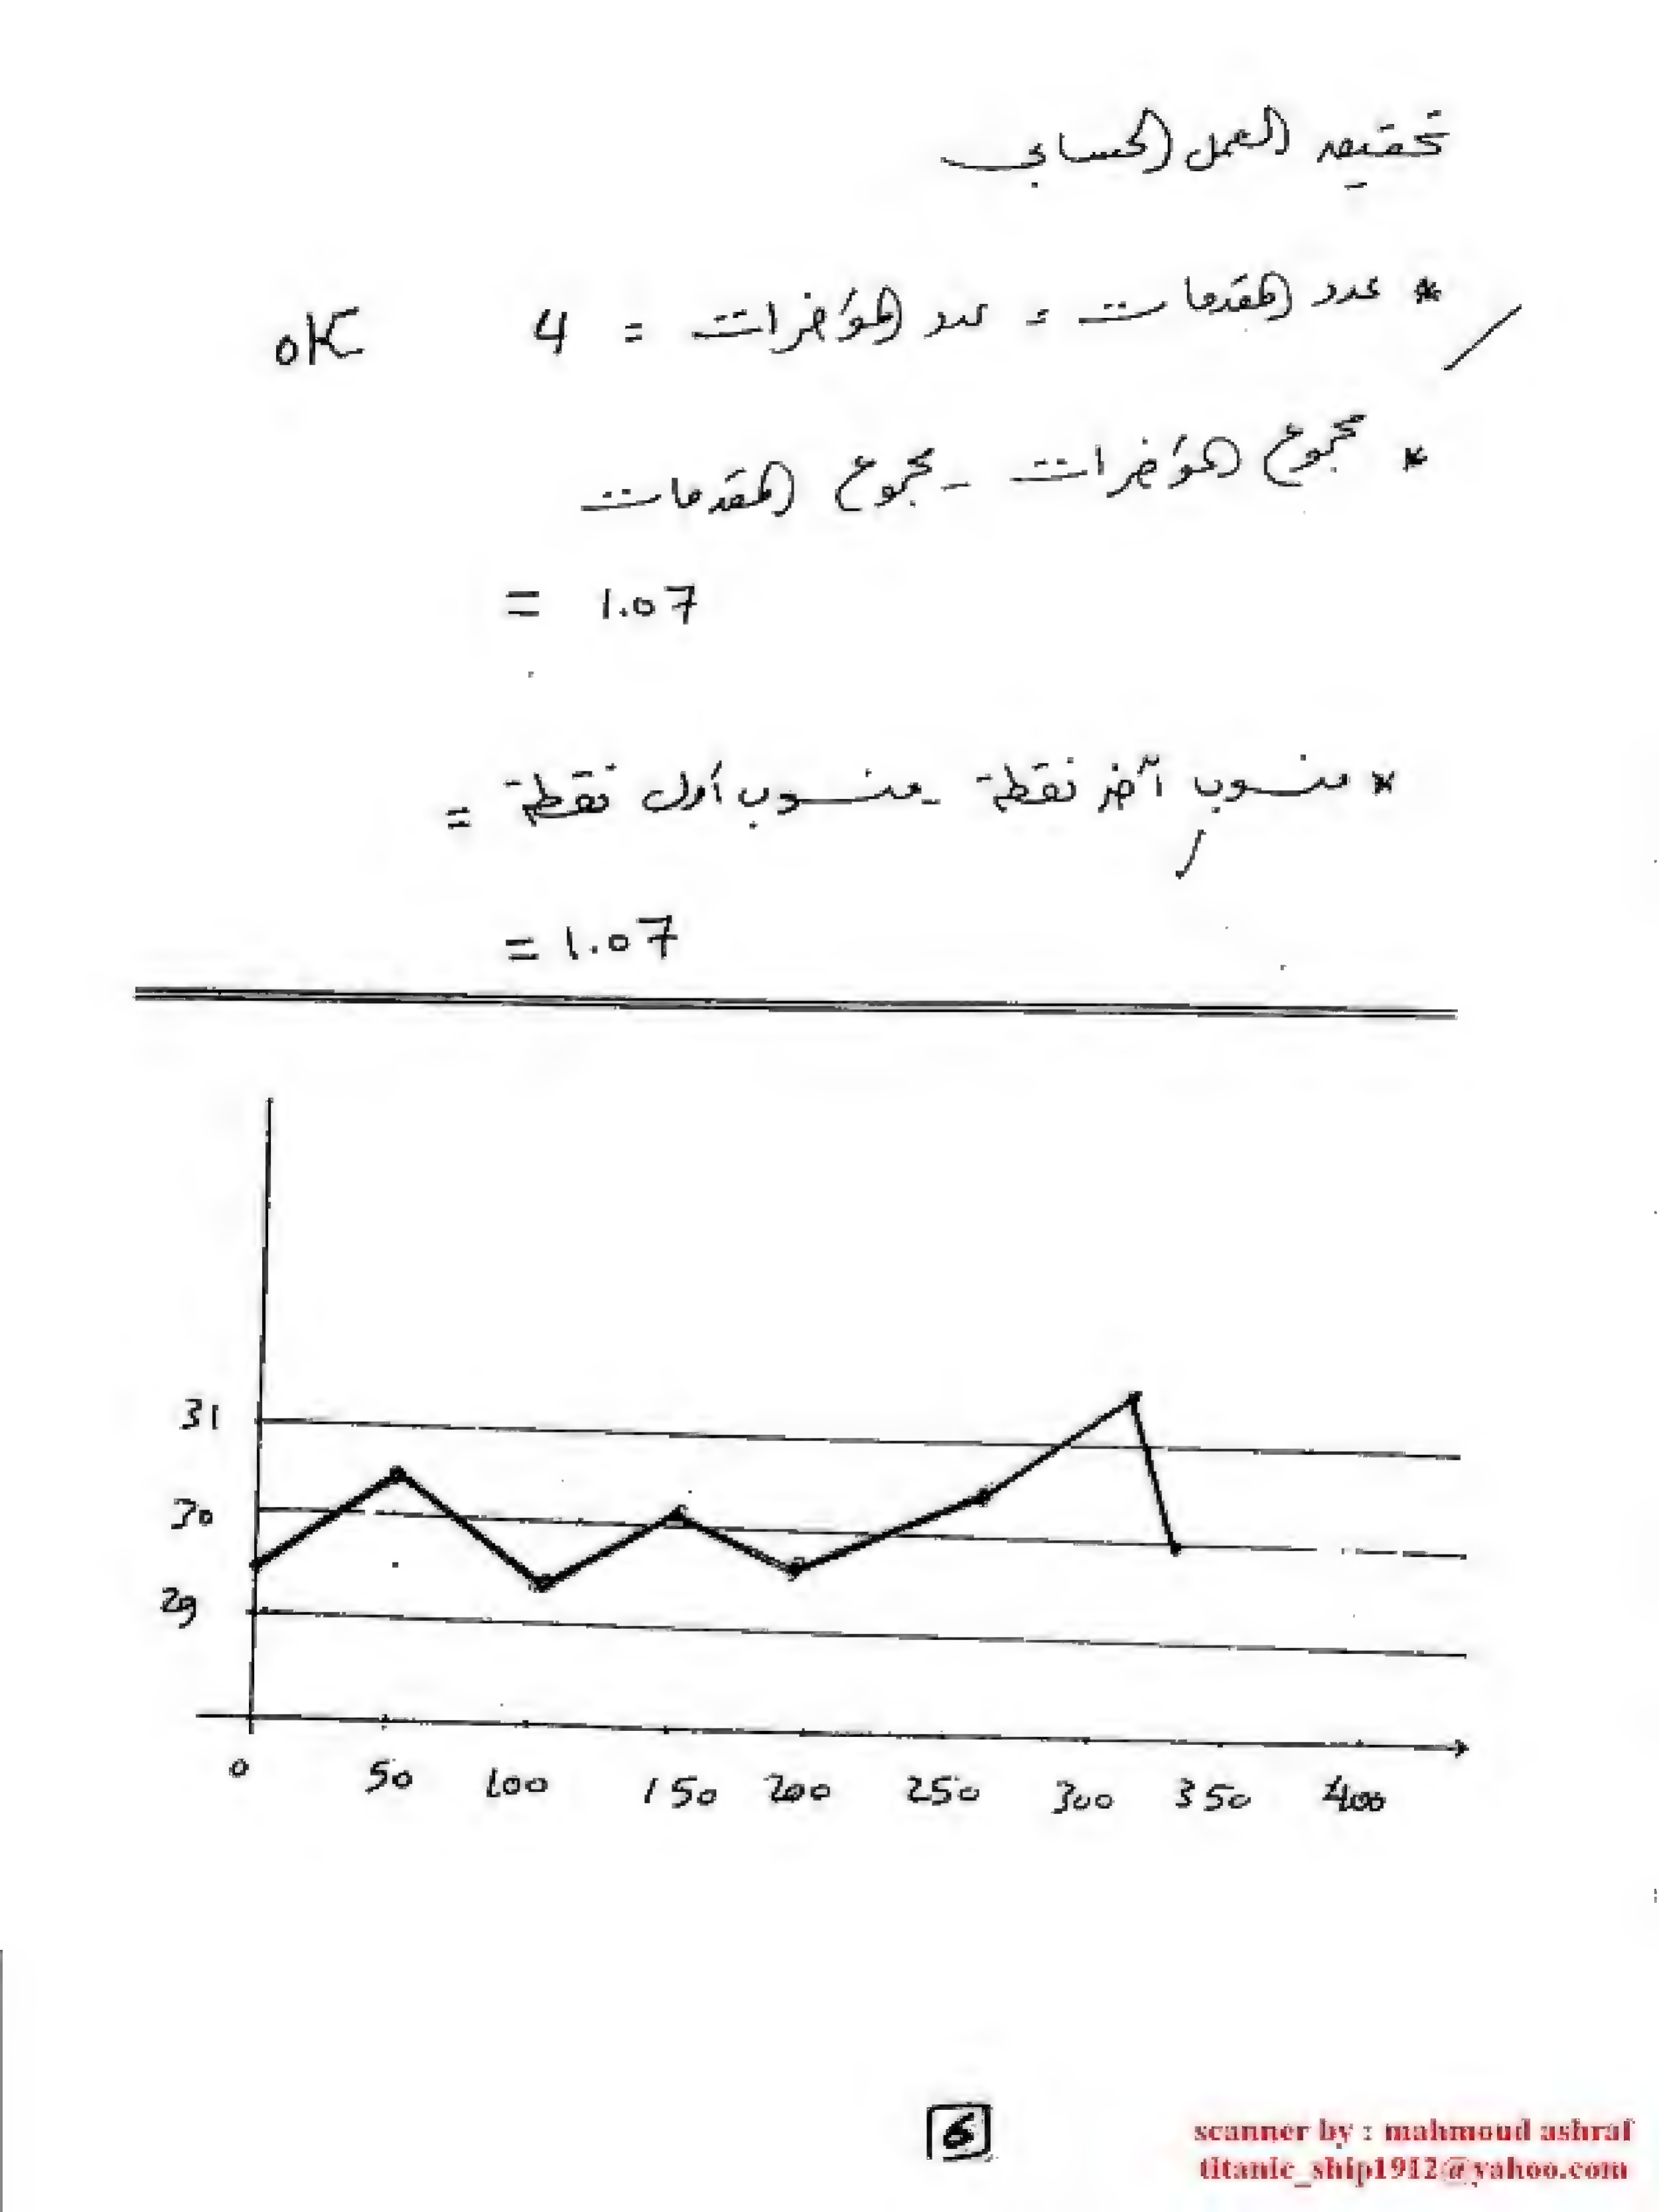 تحقيق العمل الحسابي
* عدد المقدمات = عدد المؤخرات = 4 OK
* مجموع المؤخرات - مجموع المقدمات
= 1.07
* منسوب آخر نقطة - منسوب أول نقطة =
= 1.07
31
30
29
0 50 100 150 200 250 300 350 400
6
scanner by : mahmoud ashraf
titanic_ship1912@yahoo.com